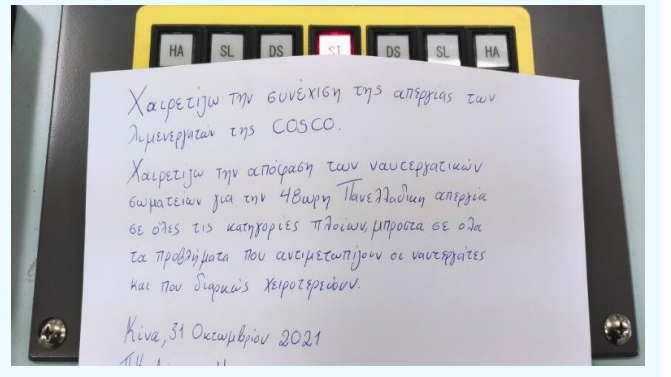 HA SL DS SI DS SL HA
Χαιρετίζω την συνέχιση της απεργίας των
λιμενεργατών της COSCO.
Χαιρετίζω την απόφαση των ναυτεργατικών
σωματείων για την 48ωρη Πανελλαδική απεργία
σε όλες τις κατηγορίες πλοίων, μπροστά σε όλα
τα προβλήματα που αντιμετωπίζουν οι ναυτεργάτες
και που διαρκώς χειροτερεύουν.
Κίνα, 31 Οκτωμβρίου 2021